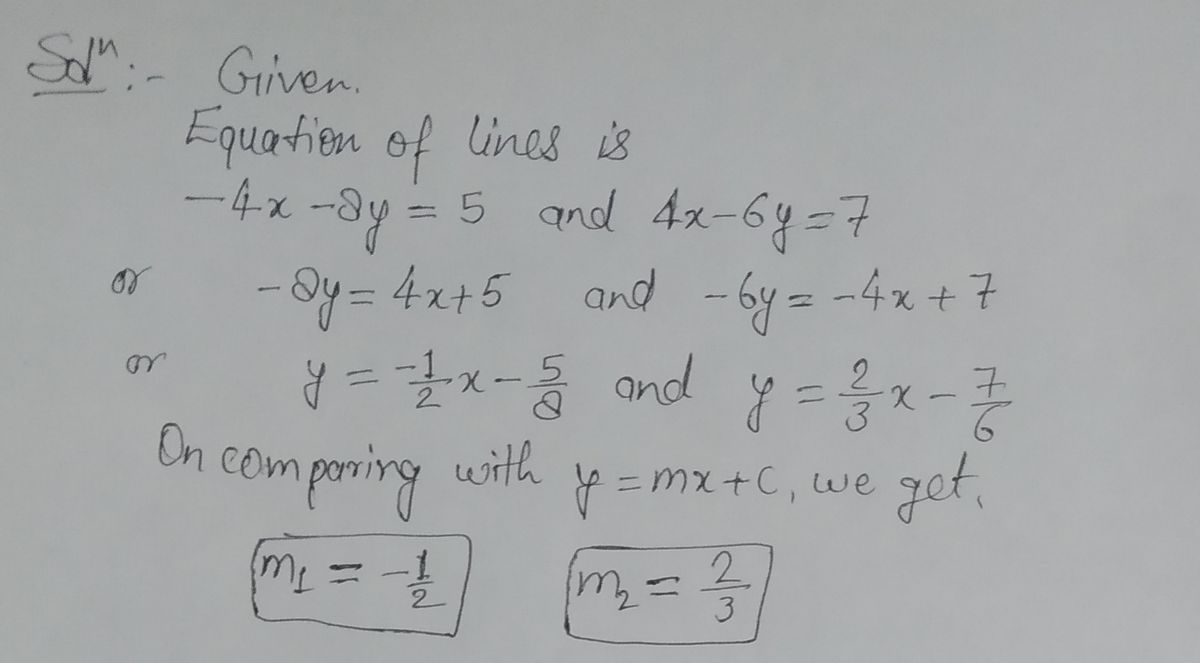 Solⁿ:- Given.
Equation of lines is
-4x - 8y = 5 and 4x - 6y = 7
or -8y = 4x + 5 and -6y = -4x + 7
or y = -1/2 x - 5/8 and y = 2/3 x - 7/6
On comparing with y = mx + c, we get,
m₁ = -1/2 m₂ = 2/3